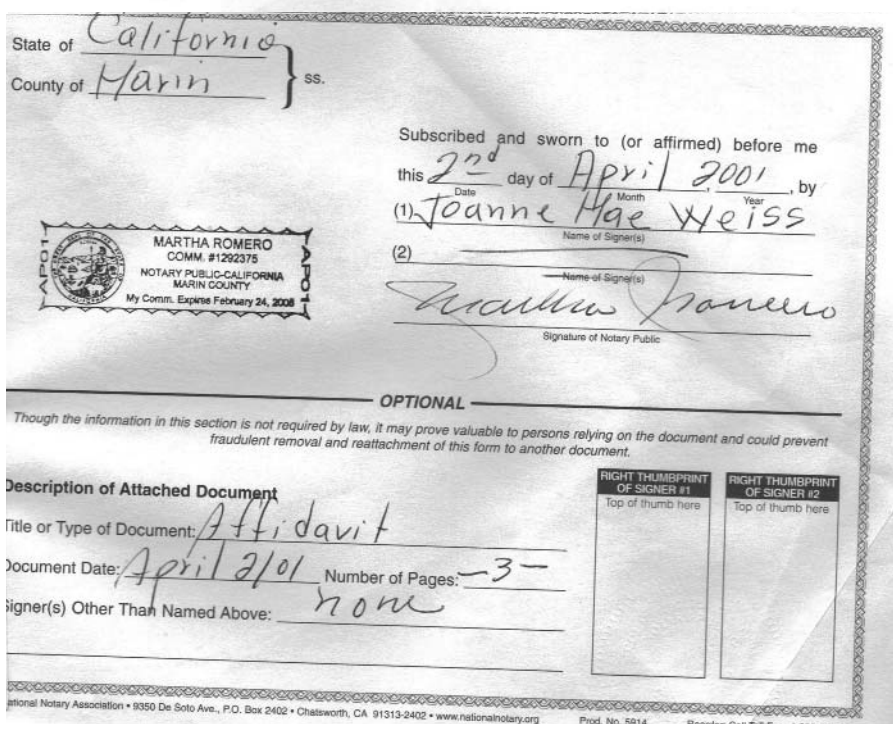 State of California
County of Marin } ss.
Subscribed and sworn to (or affirmed) before me
this 2nd day of April, 2001, by
Date Month Year
(1) Joanne Mae Weiss
Name of Signer(s)
(2)
Name of Signer(s)
Martha Romero
Signature of Notary Public
APO1
MARTHA ROMERO
COMM. #1292375
NOTARY PUBLIC-CALIFORNIA
MARIN COUNTY
My Comm. Expires February 24, 2008
APO1
OPTIONAL
Though the information in this section is not required by law, it may prove valuable to persons relying on the document and could prevent
fraudulent removal and reattachment of this form to another document.
Description of Attached Document
Title or Type of Document: Affidavit
Document Date: April 2/01 Number of Pages: -3-
Signer(s) Other Than Named Above: none
RIGHT THUMBPRINT
OF SIGNER #1
Top of thumb here
RIGHT THUMBPRINT
OF SIGNER #2
Top of thumb here
National Notary Association • 9350 De Soto Ave., P.O. Box 2402 • Chatsworth, CA 91313-2402 • www.nationalnotary.org Prod. No. 5914